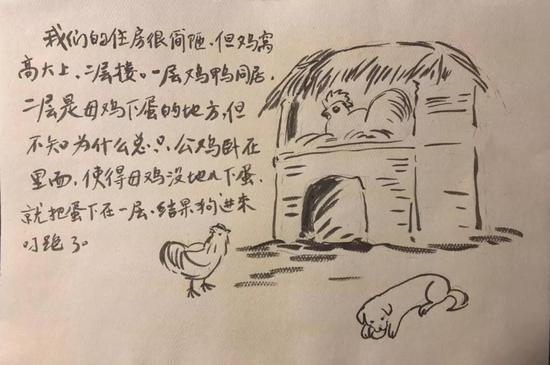 我们的住房很简陋.但鸡窝
高大上、二层楼。一层鸡鸭同居.
二层是母鸡下蛋的地方,但
不知为什么总只公鸡卧在
里面,使得母鸡没地儿下蛋.
就把蛋下在一层.结果狗进来
叼跑了。